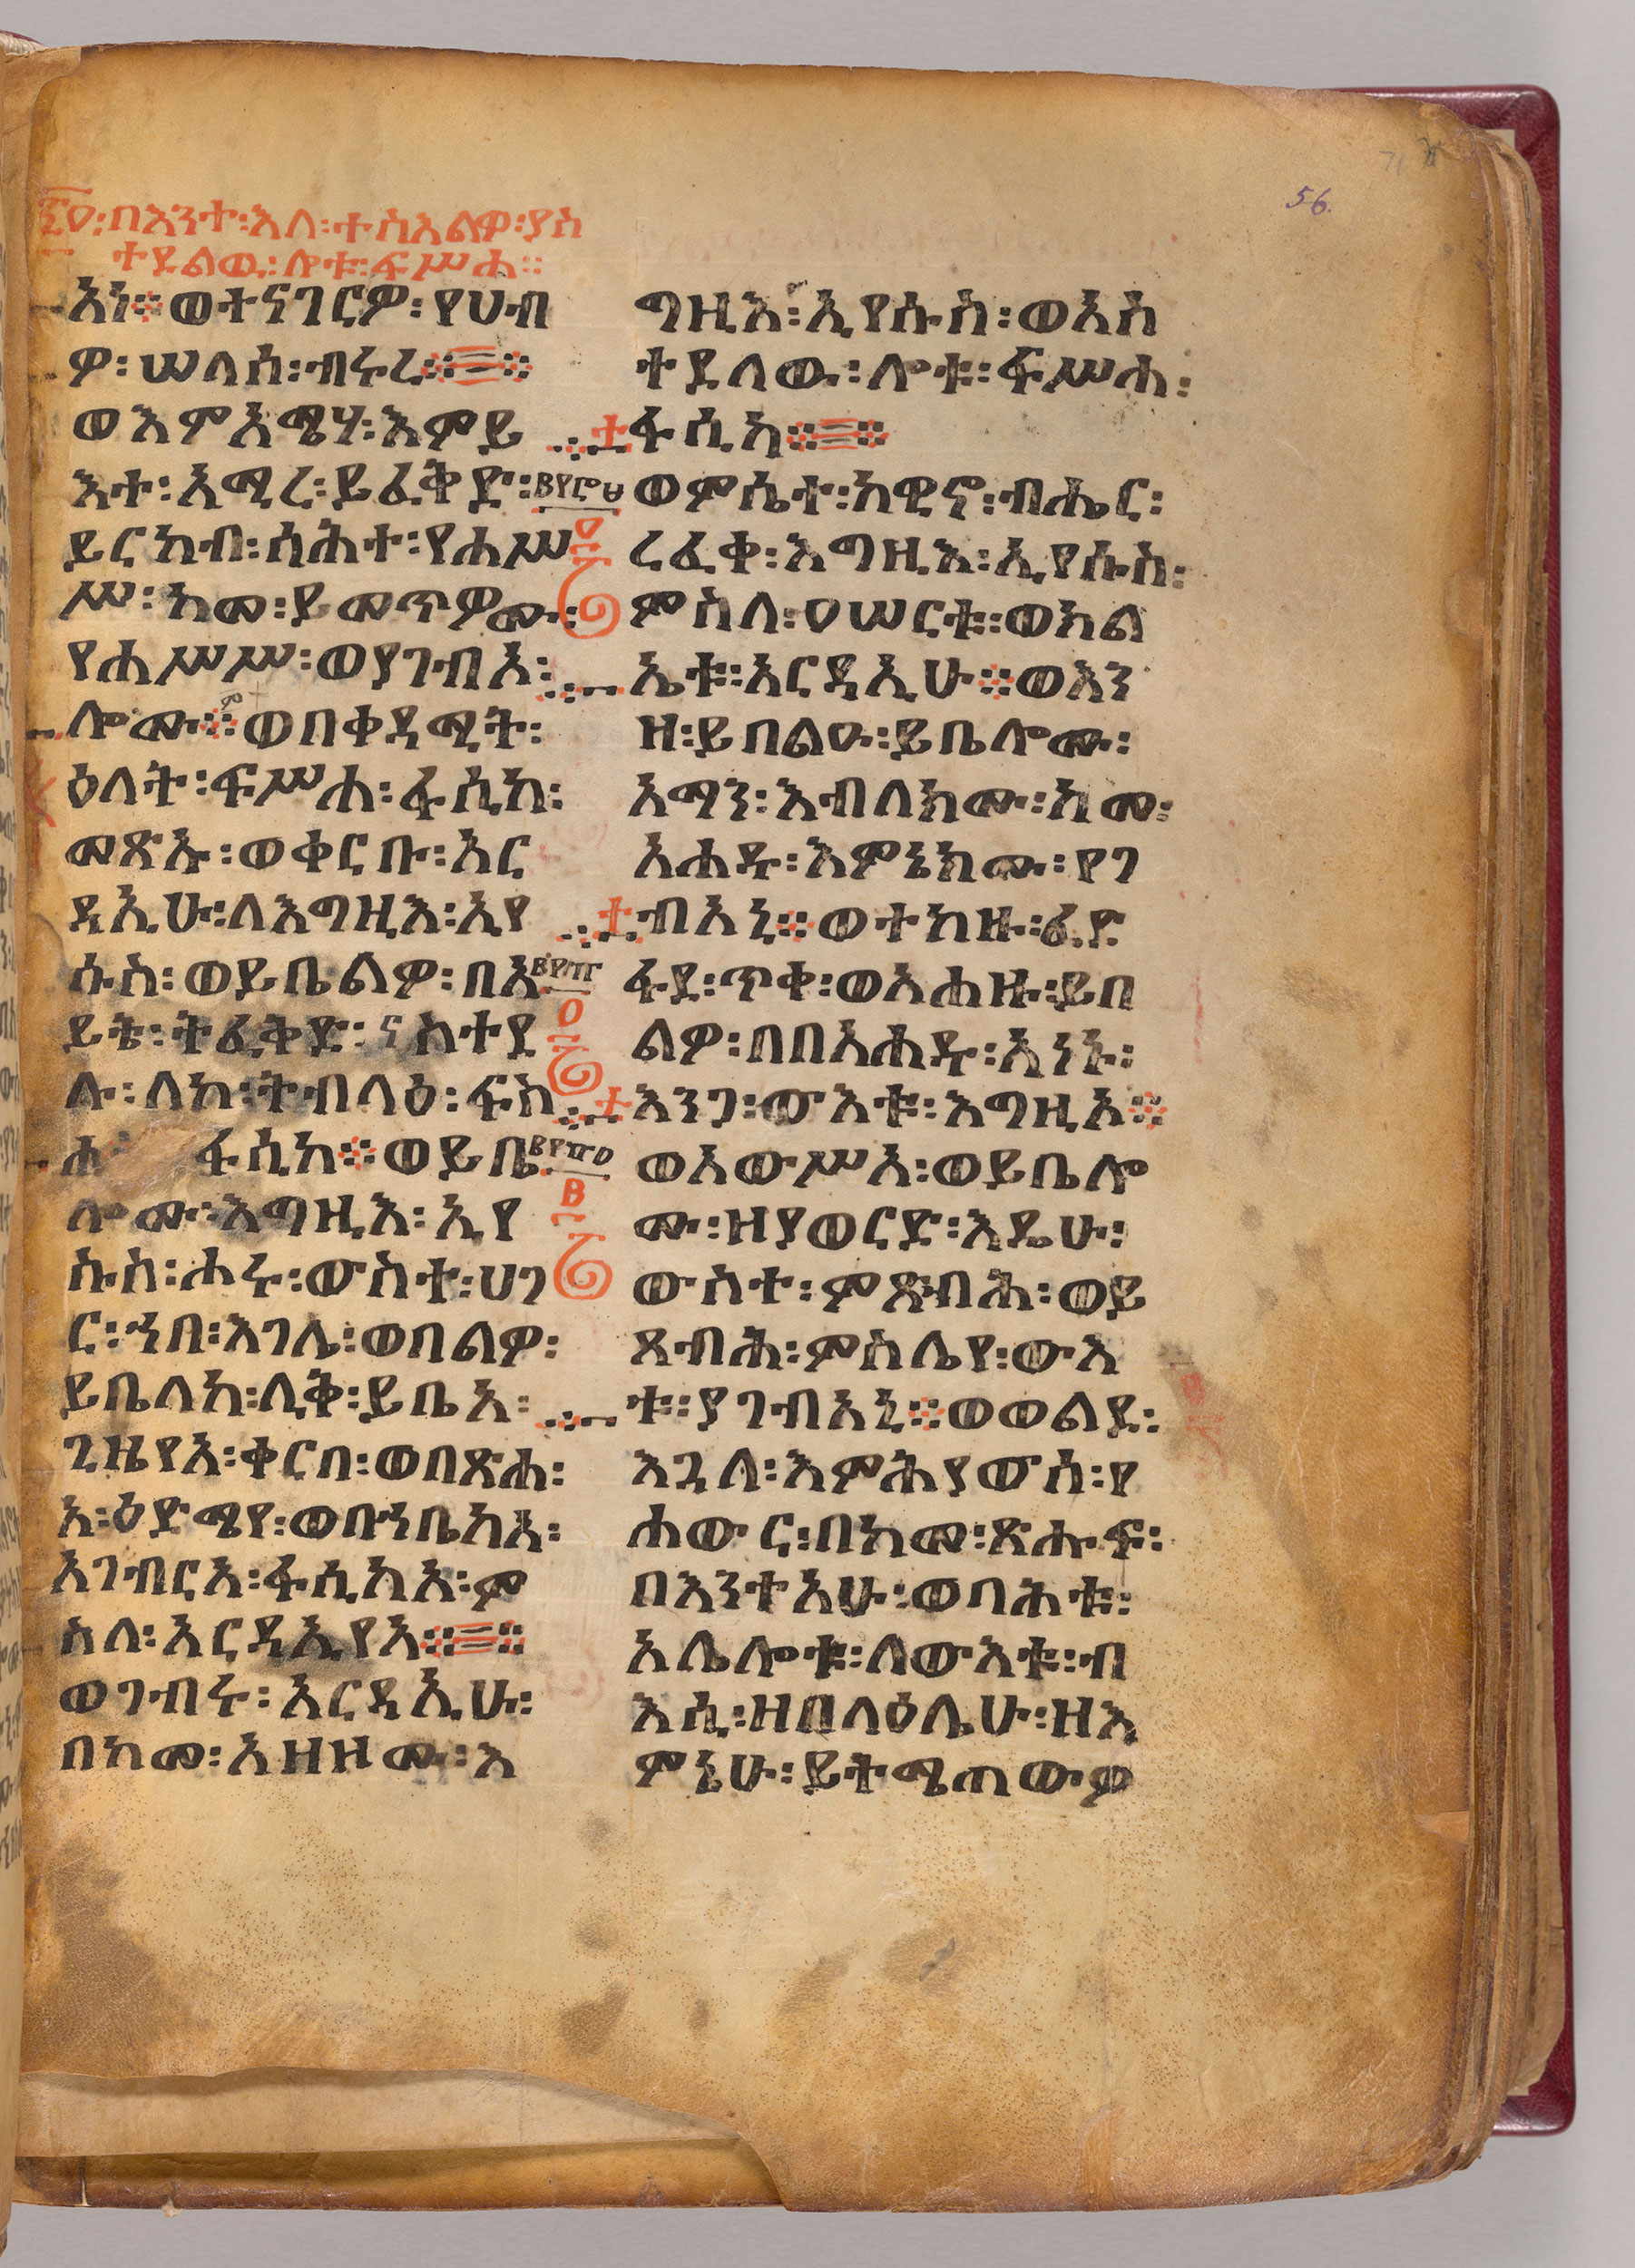 56.
፷፬፡በእንተ፡እለ፡ተስእልዎ፡ያስ
ተደልዉ፡ሎቱ፡ፍሥሐ።
እነ፨ወተናገርዎ፡የሀብ
ዎ፡ሠላሰ፡ብሩረ፨=፨
ወእምአሜሃ፡እምይ
እተ፡አሚረ፡ይፈቅድ፡
ይርከብ፡ሰሕተ፡የሐሥ
ሥ፡ከመ፡ይመጥዎሙ፡
የሐሥሥ፡ወያገብእ፡
ሎሙ፨ወበቀዳሚት፡
ዕለት፡ፍሥሐ፡ፋሲከ፡
መጽኡ፡ወቀርቡ፡አር
ዳኢሁ፡ለእግዚእ፡ኢየ
ሱስ፡ወይቤልዎ፡በአ
ይቴ፡ትፈቅድ፡ናስተደ
ሉ፡ለከ፡ትብላዕ፡ፍስ
ሐ ፋሲከ፨ወይቤ
ሎሙ፡እግዚእ፡ኢየ
ሱስ፡ሑሩ፡ውስተ፡ሀገ
ር፡ኀበ፡እገሌ፡ወበልዎ፡
ይቤለከ፡ሊቅ፡ይቤአ፡
ጊዜየአ፡ቀርበ፡ወበጽሐ፡
አ፡ዕድሜየ፡ወበኀቤከአ፡
እገብርአ፡ፋሲካአ፡ም
ስለ፡አርዳኢየአ፨=፨
ወገብሩ፡አርዳኢሁ፡
በከመ፡አዘዘሙ፡እ
ግዚእ፡ኢየሱስ፡ወአስ
ተደለዉ፡ሎቱ፡ፍሥሐ፡
ፋሲካ፨=፨
ወምሴተ፡ከዊኖ፡ብሔር፡
ረፈቀ፡እግዚእ፡ኢየሱስ፡
ምስለ፡፲ሠርቱ፡ወክል
ኤቱ፡አርዳኢሁ፨ወእን
ዘ፡ይበልዑ፡ይቤሎሙ፡
አማን፡እብለክሙ፡ከመ፡
አሐዱ፡እምኔክሙ፡የገ
ብአኒ፨ወተከዙ፡ፈድ
ፋደ፡ጥቀ፡ወአሐዙ፡ይበ
ልዎ፡በበአሐዱ፡አነኑ፡
እንጋ፡ውእቱ፡እግዚእ፨
ወአውሥአ፡ወይቤሎ
ሙ፡ዘያወርድ፡እዴሁ፡
ውስተ፡ምጽብሕ፡ወይ
ጸብሕ፡ምስሌየ፡ውእ
ቱ፡ያገብአኒ፨ወወልደ፡
እጓለ፡እምሕያውሰ፡የ
ሐውር፡በከመ፡ጽሑፍ፡
በእንተአሁ፡ወባሕቱ፡
አሌሎቱ፡ለውእቱ፡ብ
እሲ፡ዘበላዕሌሁ፡ዘእ
ምኔሁ፡ይትሜጠውዎ